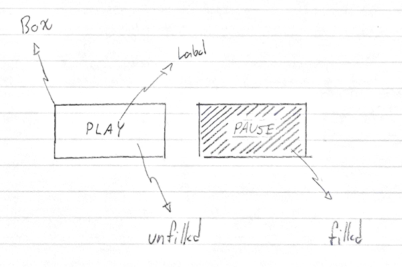 Box
Label
PLAY
PAUSE
unfilled
filled